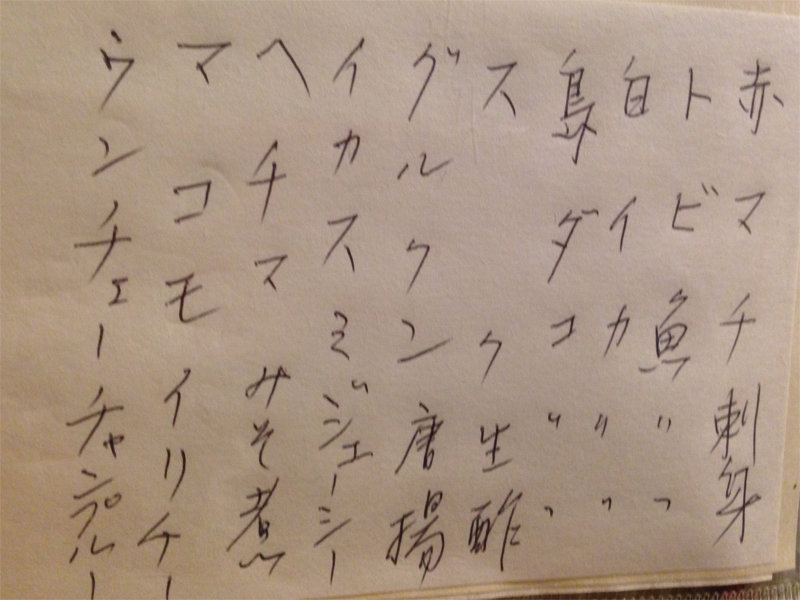 赤マチ刺身
トビ魚〃〃
白イカ〃〃
島ダコ〃〃
スク生酢
グルクン唐揚
イカスミジューシー
ヘチマみそ煮
マコモイリチー
ウンチェーチャンプルー